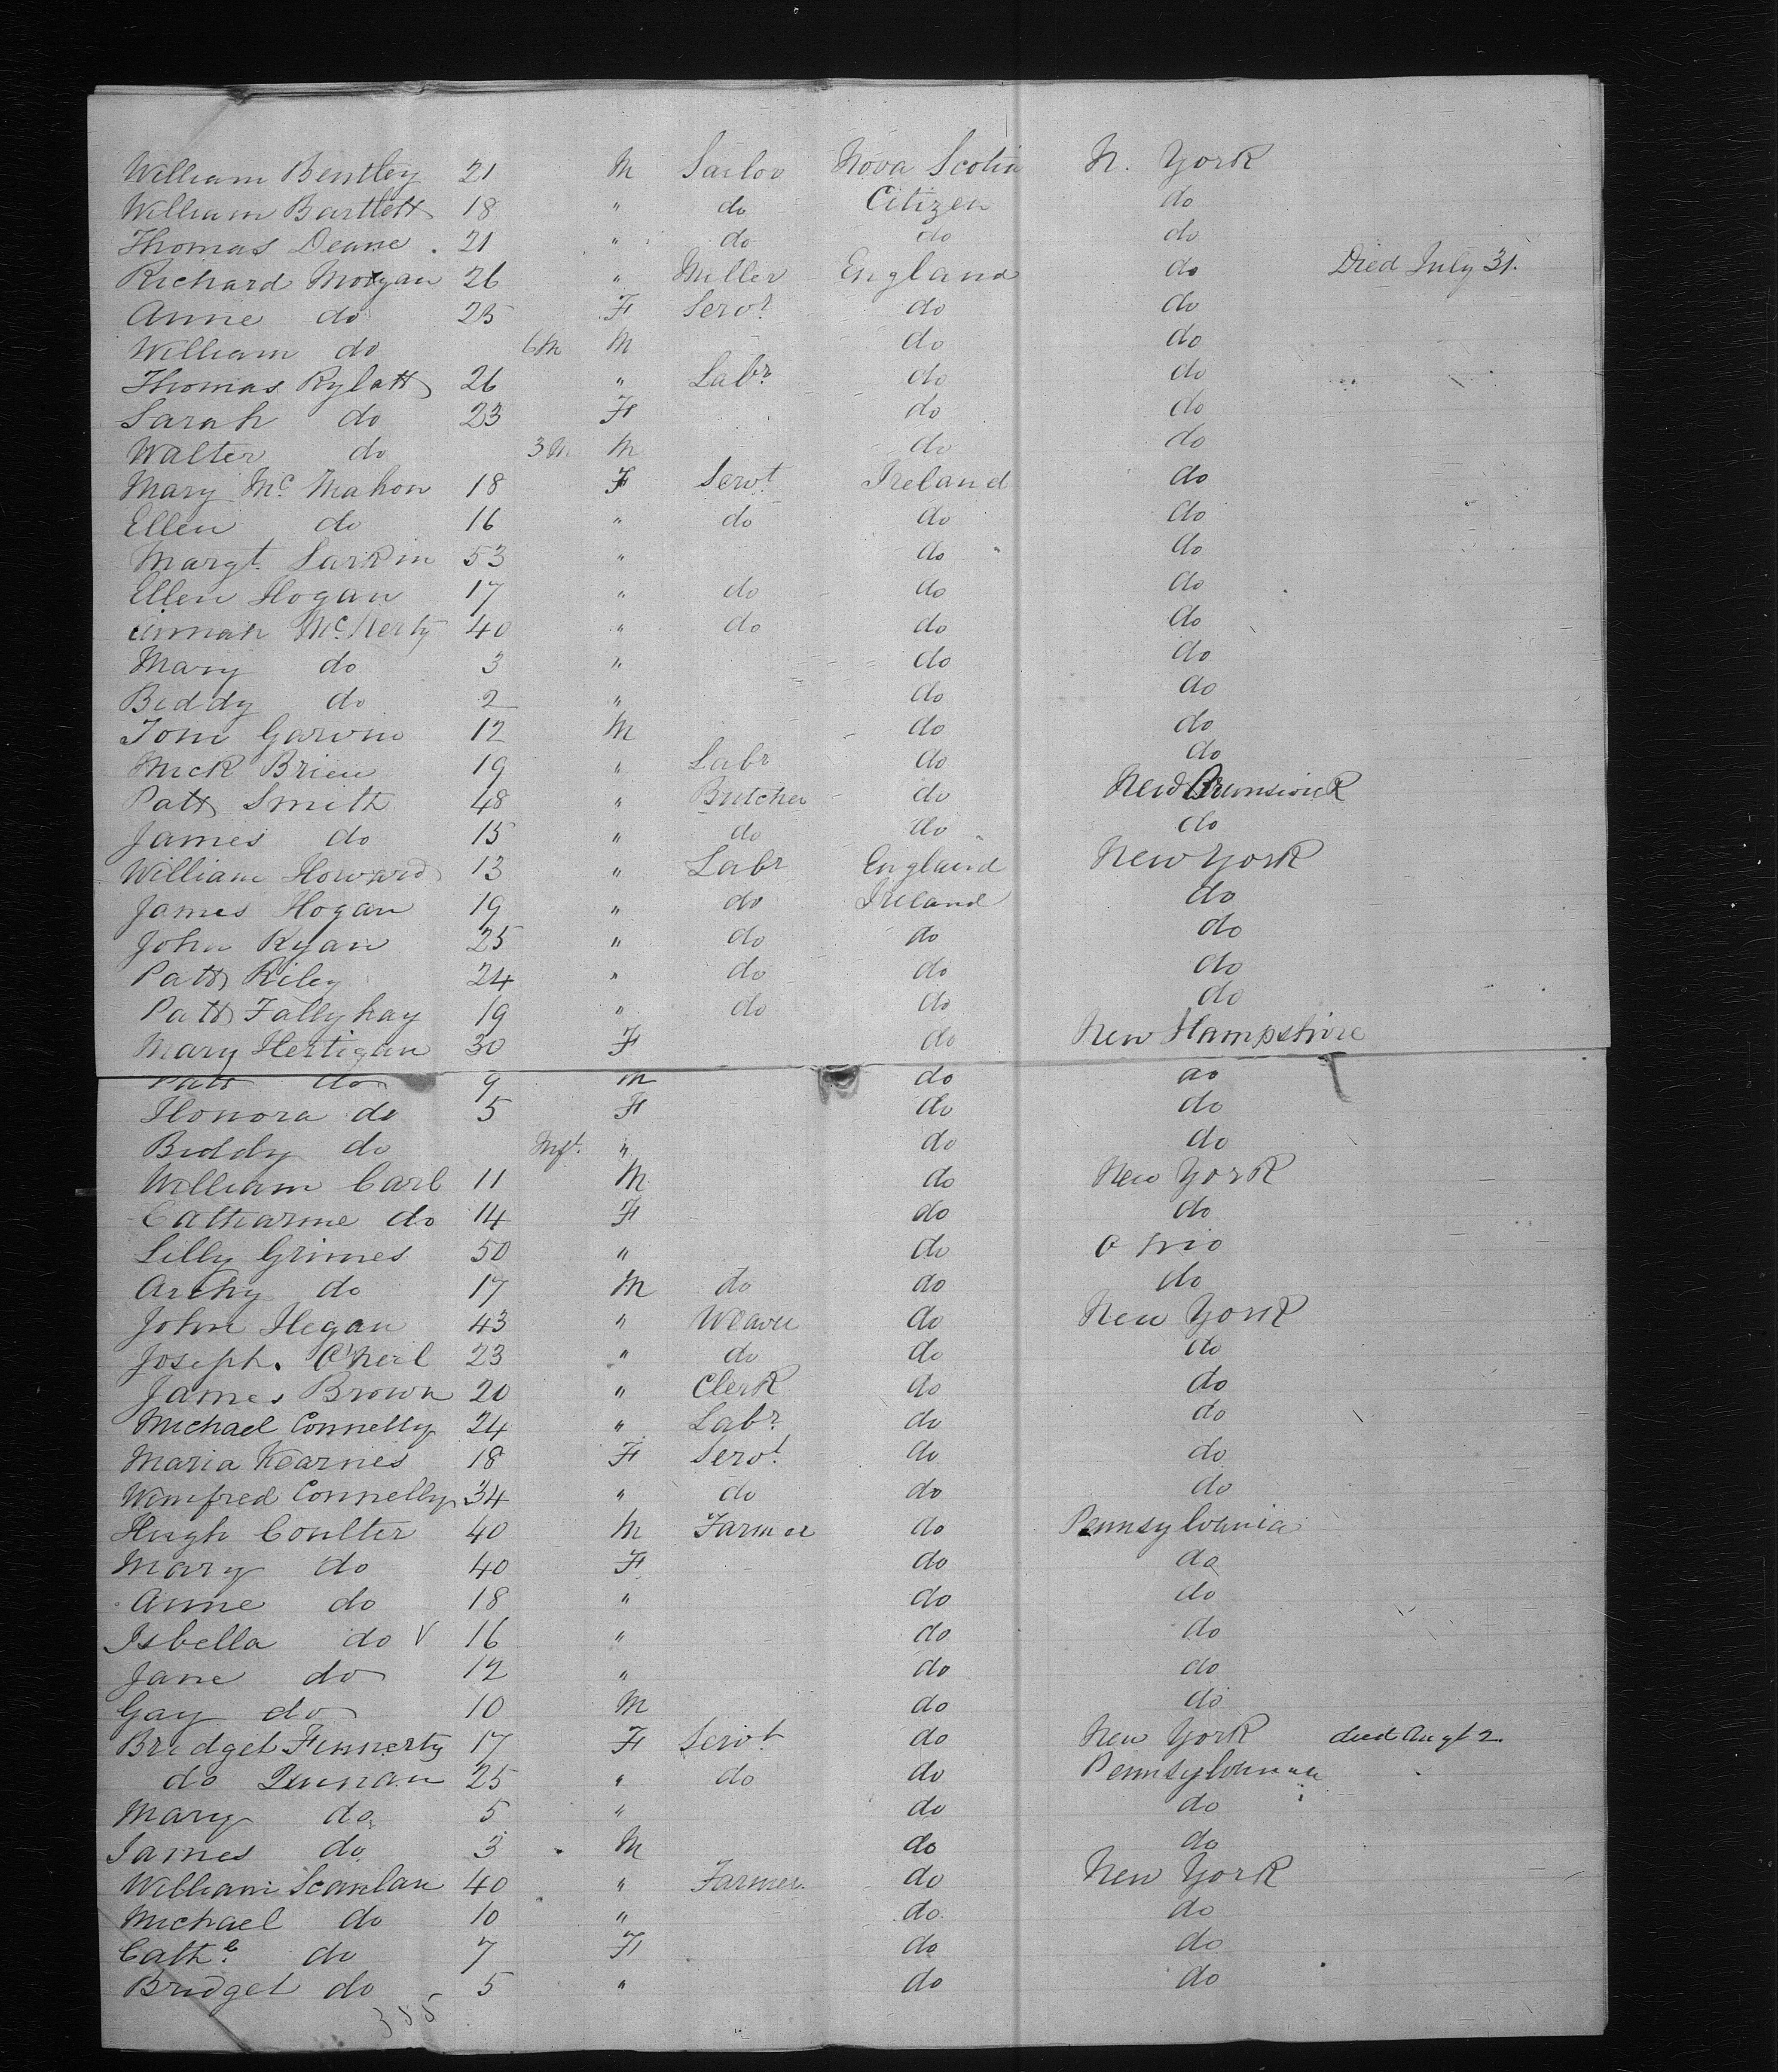 William Bentley 21 M Sailor Nova Scotia N. York
William Bartlett 18 " do Citizen do
Thomas Deane . 21 " do do do
Richard Morgan 26 " Miller England do Died July 31.
Anne do 25 F Servt do do
William do 6M M do do
Thomas Rylatt 26 " Labr do do
Sarah do 23 F do do
Walter do 3M M do do
Mary Mc Mahon 18 F Servt Ireland do
Ellen do 16 " do do do
Margt. Larkin 53 " do do
Ellen Hogan 17 " do do do
Mc 40 " do do do
Mary do 3 " do do
Biddy do 2 " do do
Tom Garvin 12 M do do
Mick Brien 19 " Labr do do
Patt Smith 48 " Butcher do New Brunswick
James do 15 " do do do
William Howard 13 " Labr England New York
James Hogan 19 " do Ireland do
John Ryan 25 " do do do
Patt Riley 24 " do do do
Patt Fallyhay 19 " do do do
Mary Hertigan 30 F do New Hampshire
Patt do 9 M do do
Honora do 5 F do do
Biddy do Inft. " do do
William Carl 11 M do New York
Catharine do 14 F do do
Lilly Grimes 50 " do Ohio
Archy do 17 M do do do
John Hegan 43 " Weaver do New York
Joseph. O'Neil 23 " do do do
James Brown 20 " Clerk do do
Michael Connelly 24 " Labr do do
Maria Kearnes 18 F Servt do do
Winifred Connelly 34 " do do do
Hugh Coulter 40 M Farmer do Pennsylvania
Mary do 40 F do do
Anne do 18 " do do
Isbella do V 16 " do do
Jane do 12 " do do
Gay do 10 M do do
Bridget Finnerty 17 F Servt do New York died Augt 2
do 25 " do do Pennsylvania
Mary do 5 " do do
James do 3 M do do
William Scanlan 40 " Farmer do New York
Michael do 10 " do do
Cathe do 7 F do do
Bridget do 5 " do do
355